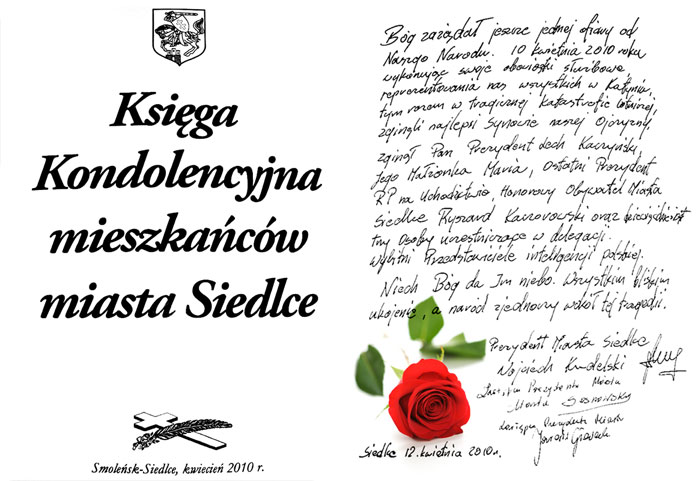 Księga
Kondolencyjna
mieszkańców
miasta Siedlce
Smoleńsk-Siedlce, kwiecień 2010 r.
Bóg zażądał jeszcze jednej ofiary od
Naszego Narodu. 10 kwietnia 2010 roku
wykonując swoje obowiązki służbowe
reprezentowania nas wszystkich w Katyniu,
tym razem w tragicznej katastrofie lotniczej,
zginęli najlepsi Synowie naszej Ojczyzny,
zginął Pan Prezydent Lech Kaczyński,
Jego Małżonka Maria, Ostatni Prezydent
RP na Uchodźctwie, Honorowy Obywatel Miasta
Siedlce Ryszard Kaczorowski oraz
trzy Osoby uczestniczące w delegacji.
Wybitni Przedstawiciele inteligencji polskiej.
Niech Bóg da Im niebo. Wszystkim bliskim
ukojenie, a naród zjednoczy wokół tej tragedii.
Prezydent Miasta Siedlce
Wojciech Kudelski
Zastępca Prezydenta Miasta
Sosnowska
Zastępca Prezydenta Miasta
Siedlce 12 kwietnia 2010 r.